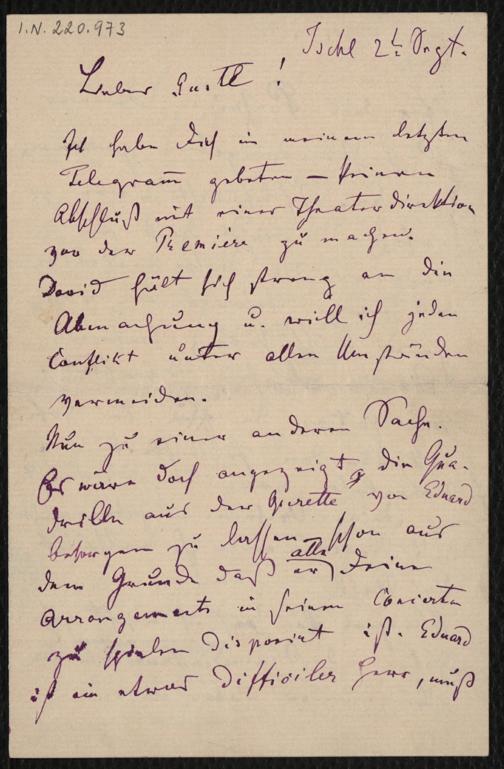 I.N. 220.973
Ischl 2 1/2 Sept.
Lieber Gustl!
Ich habe Dich in meinem letzten
Telegram̄ gebeten – keinen
Abschluß mit einer Theaterdirektion
vor der Première zu machen.
David hält sich streng an die
Abmachung u. will ich jeden
Conflikt unter allen Umständen
vermeiden.
Nun zu einer anderen Sache.
Es wäre doch angezeigt, die Qua-
drille aus der von Eduard
besorgen zu lassen schon aus
dem Grunde daß er alle Deine
Arrangements in seinen Concerten
zu spielen disponirt ist. Eduard
ist ein etwas difficiler Herr, muß